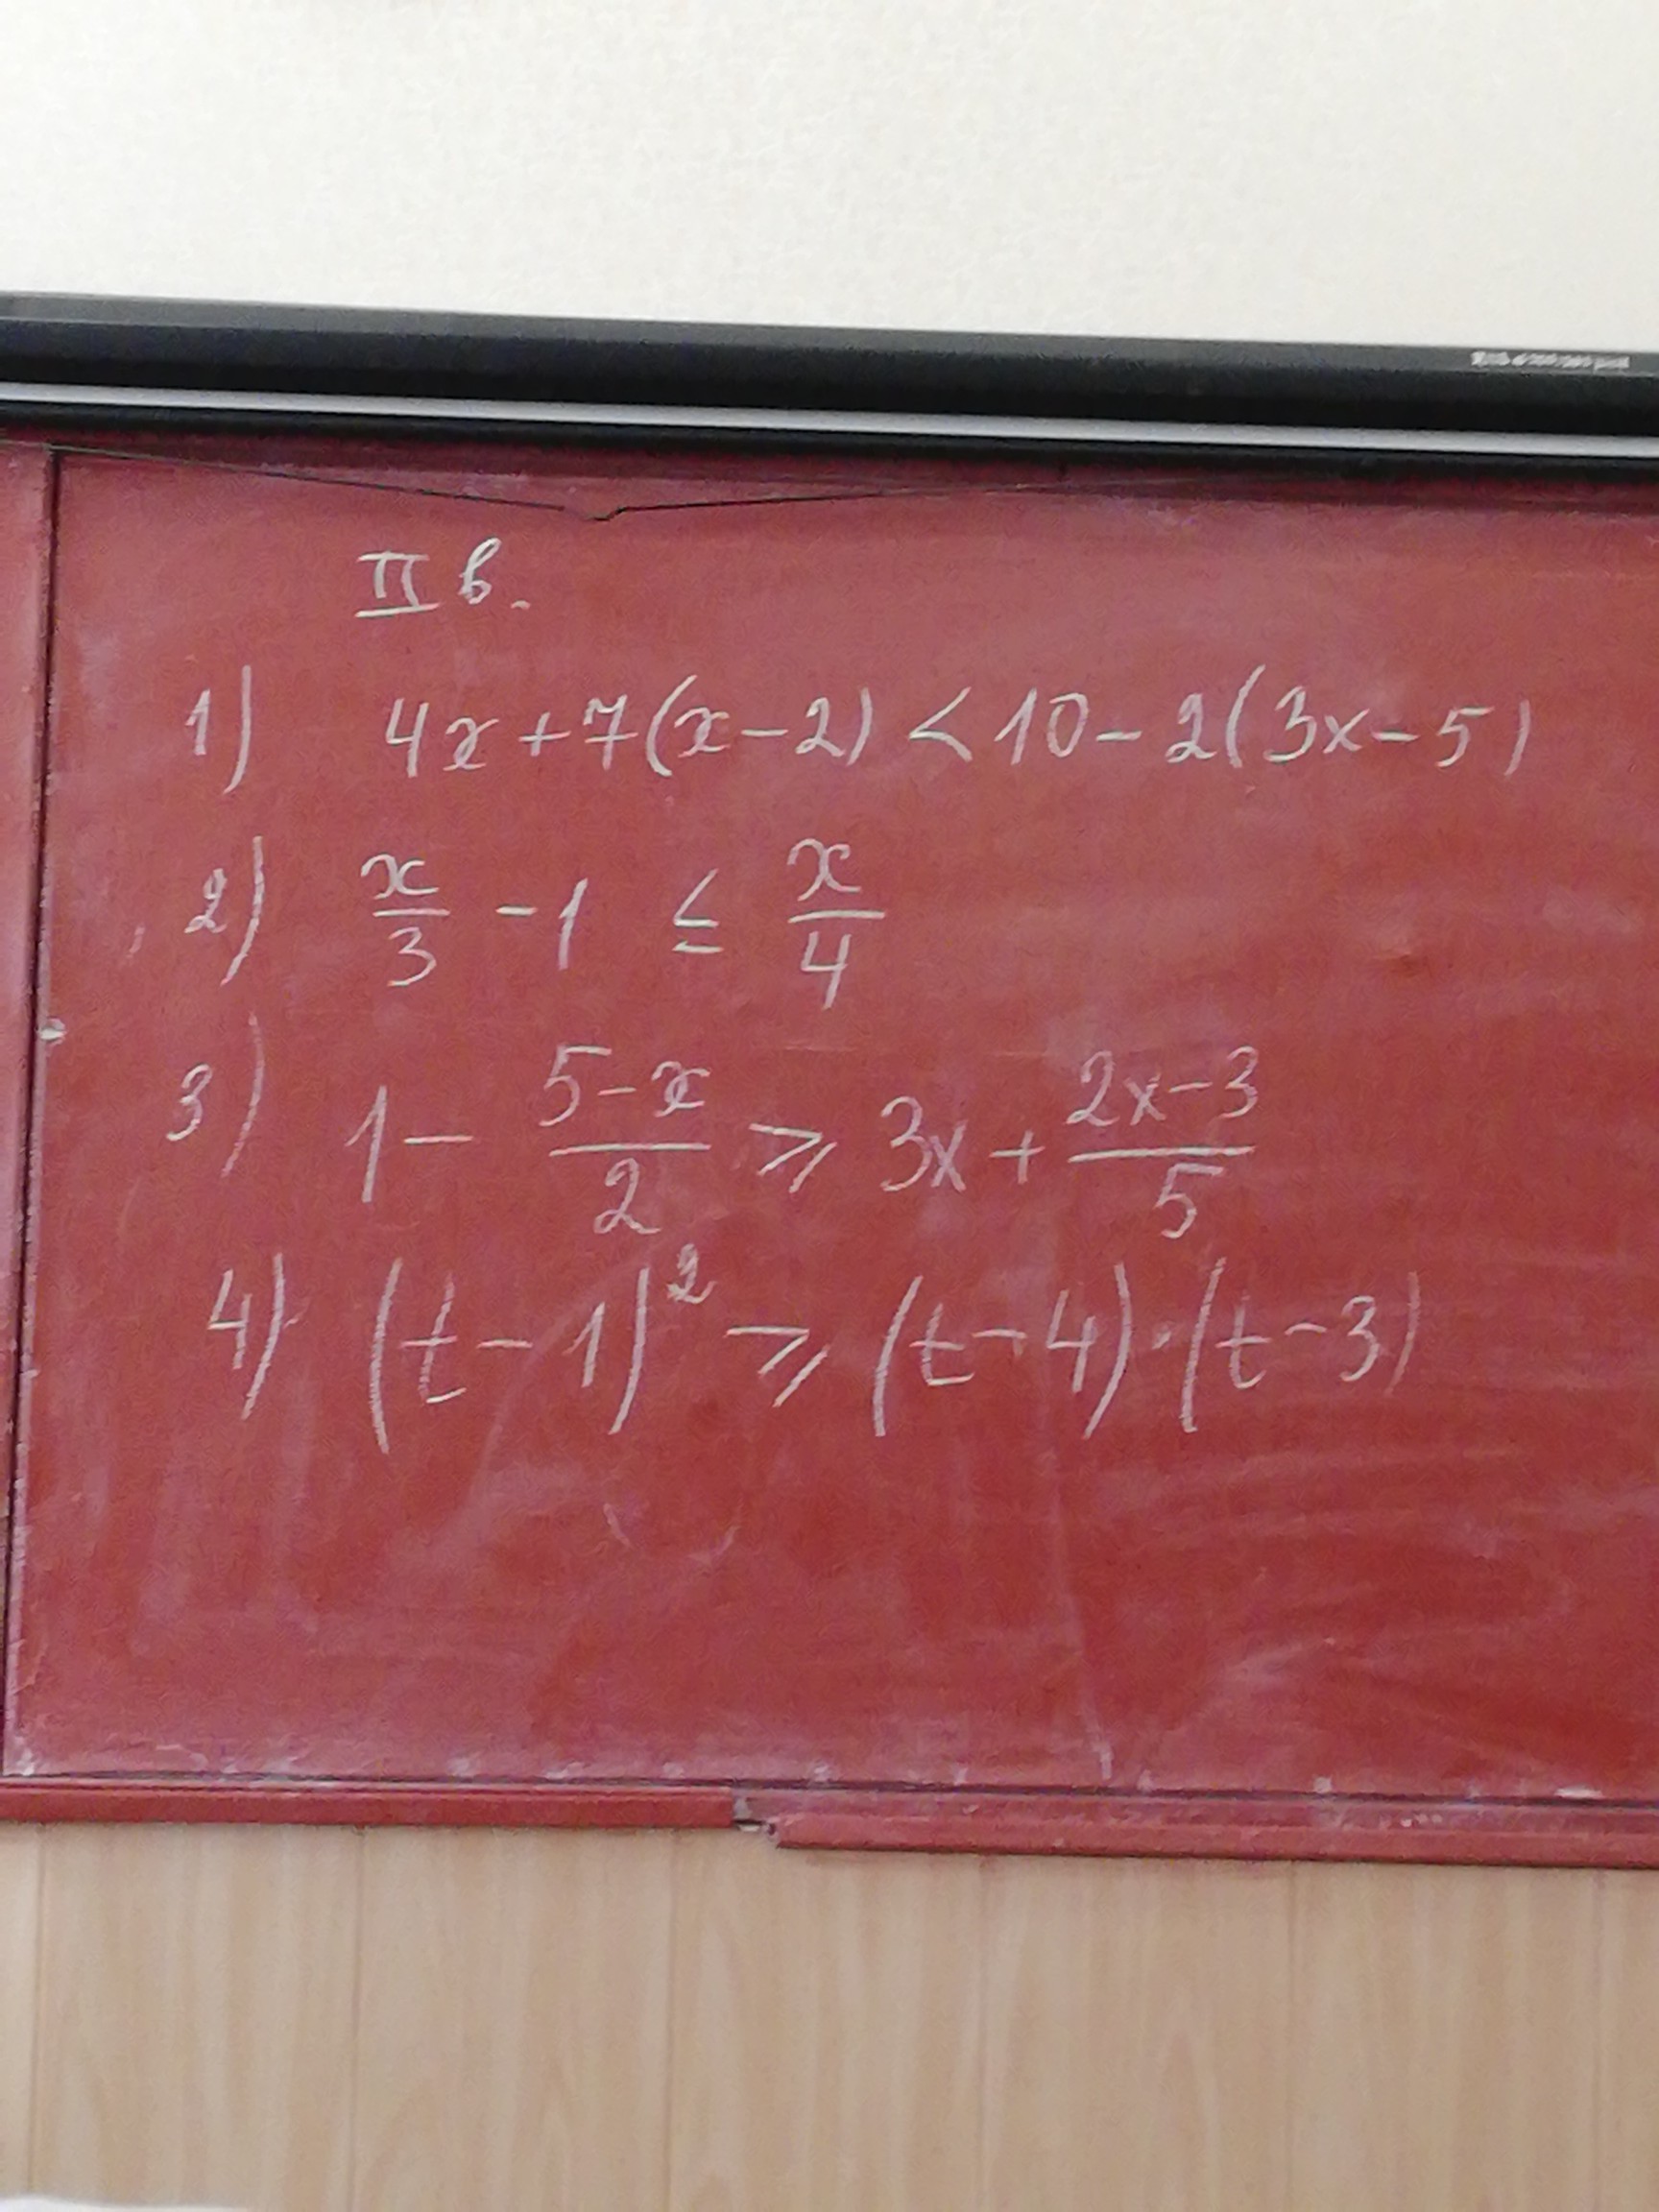 II в.
1) 4x + 7(x - 2) < 10 - 2(3x - 5)
2) x/3 - 1 ≤ x/4
3) 1 - (5 - x)/2 ⩾ 3x + (2x - 3)/5
4) (t - 1)² ⩾ (t - 4)·(t - 3)